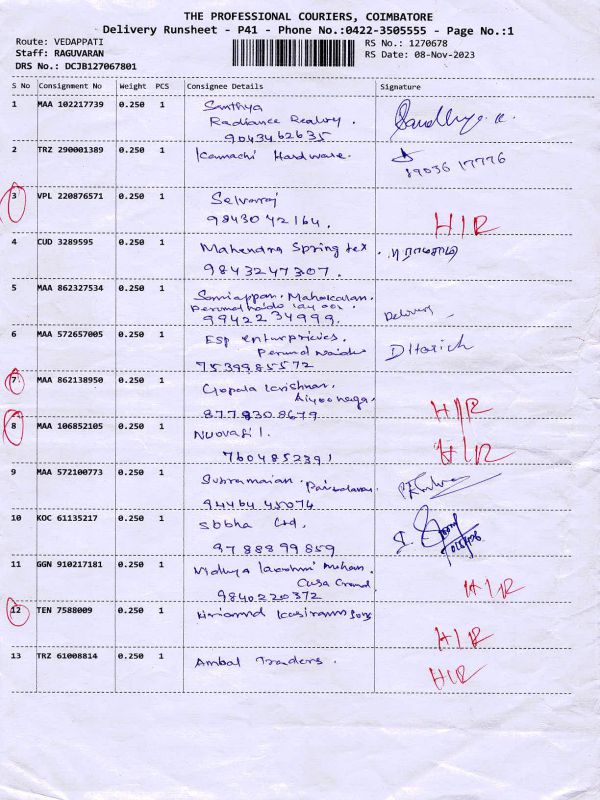 THE PROFESSIONAL COURIERS, COIMBATORE
Delivery Runsheet - P41 - Phone No.:0422-3505555 - Page No.:1
Route: VEDAPPATI RS No.: 1270678
Staff: RAGUVARAN RS Date: 08-Nov-2023
DRS No.: DCJB127067801
S No Consignment No Weight PCS Consignee Details Signature
1 MAA 102217739 0.250 1 Santhya
Radiance Realty.
9043462635
2 TRZ 290001389 0.250 1 Kamachi Hardware.
3 VPL 220876571 0.250 1 Selvaraj HIR
9843042164.
4 CUD 3289595 0.250 1 Mahendra Spring tex.
9843247307.
5 MAA 862327534 0.250 1
9942234999. Delivery
6 MAA 572657005 0.250 1 Esp enturpricies.
Perumal Naidu
7539985572
7 MAA 862138950 0.250 1 Gopala Krishnan. HIR
8778308679
8 MAA 106852105 0.250 1 HIR
7604852391
9 MAA 572100773 0.250 1 Subramaian.
94464 45074
10 KOC 61135217 0.250 1 Sobha Ltd.
9788899859
11 GGN 910217181 0.250 1 Vidhya Laxshmi Mohan. HIR
Casa Grand.
9840220372
12 TEN 7588009 0.250 1 HIR
13 TRZ 61008814 0.250 1 Ambal Traders. HIR